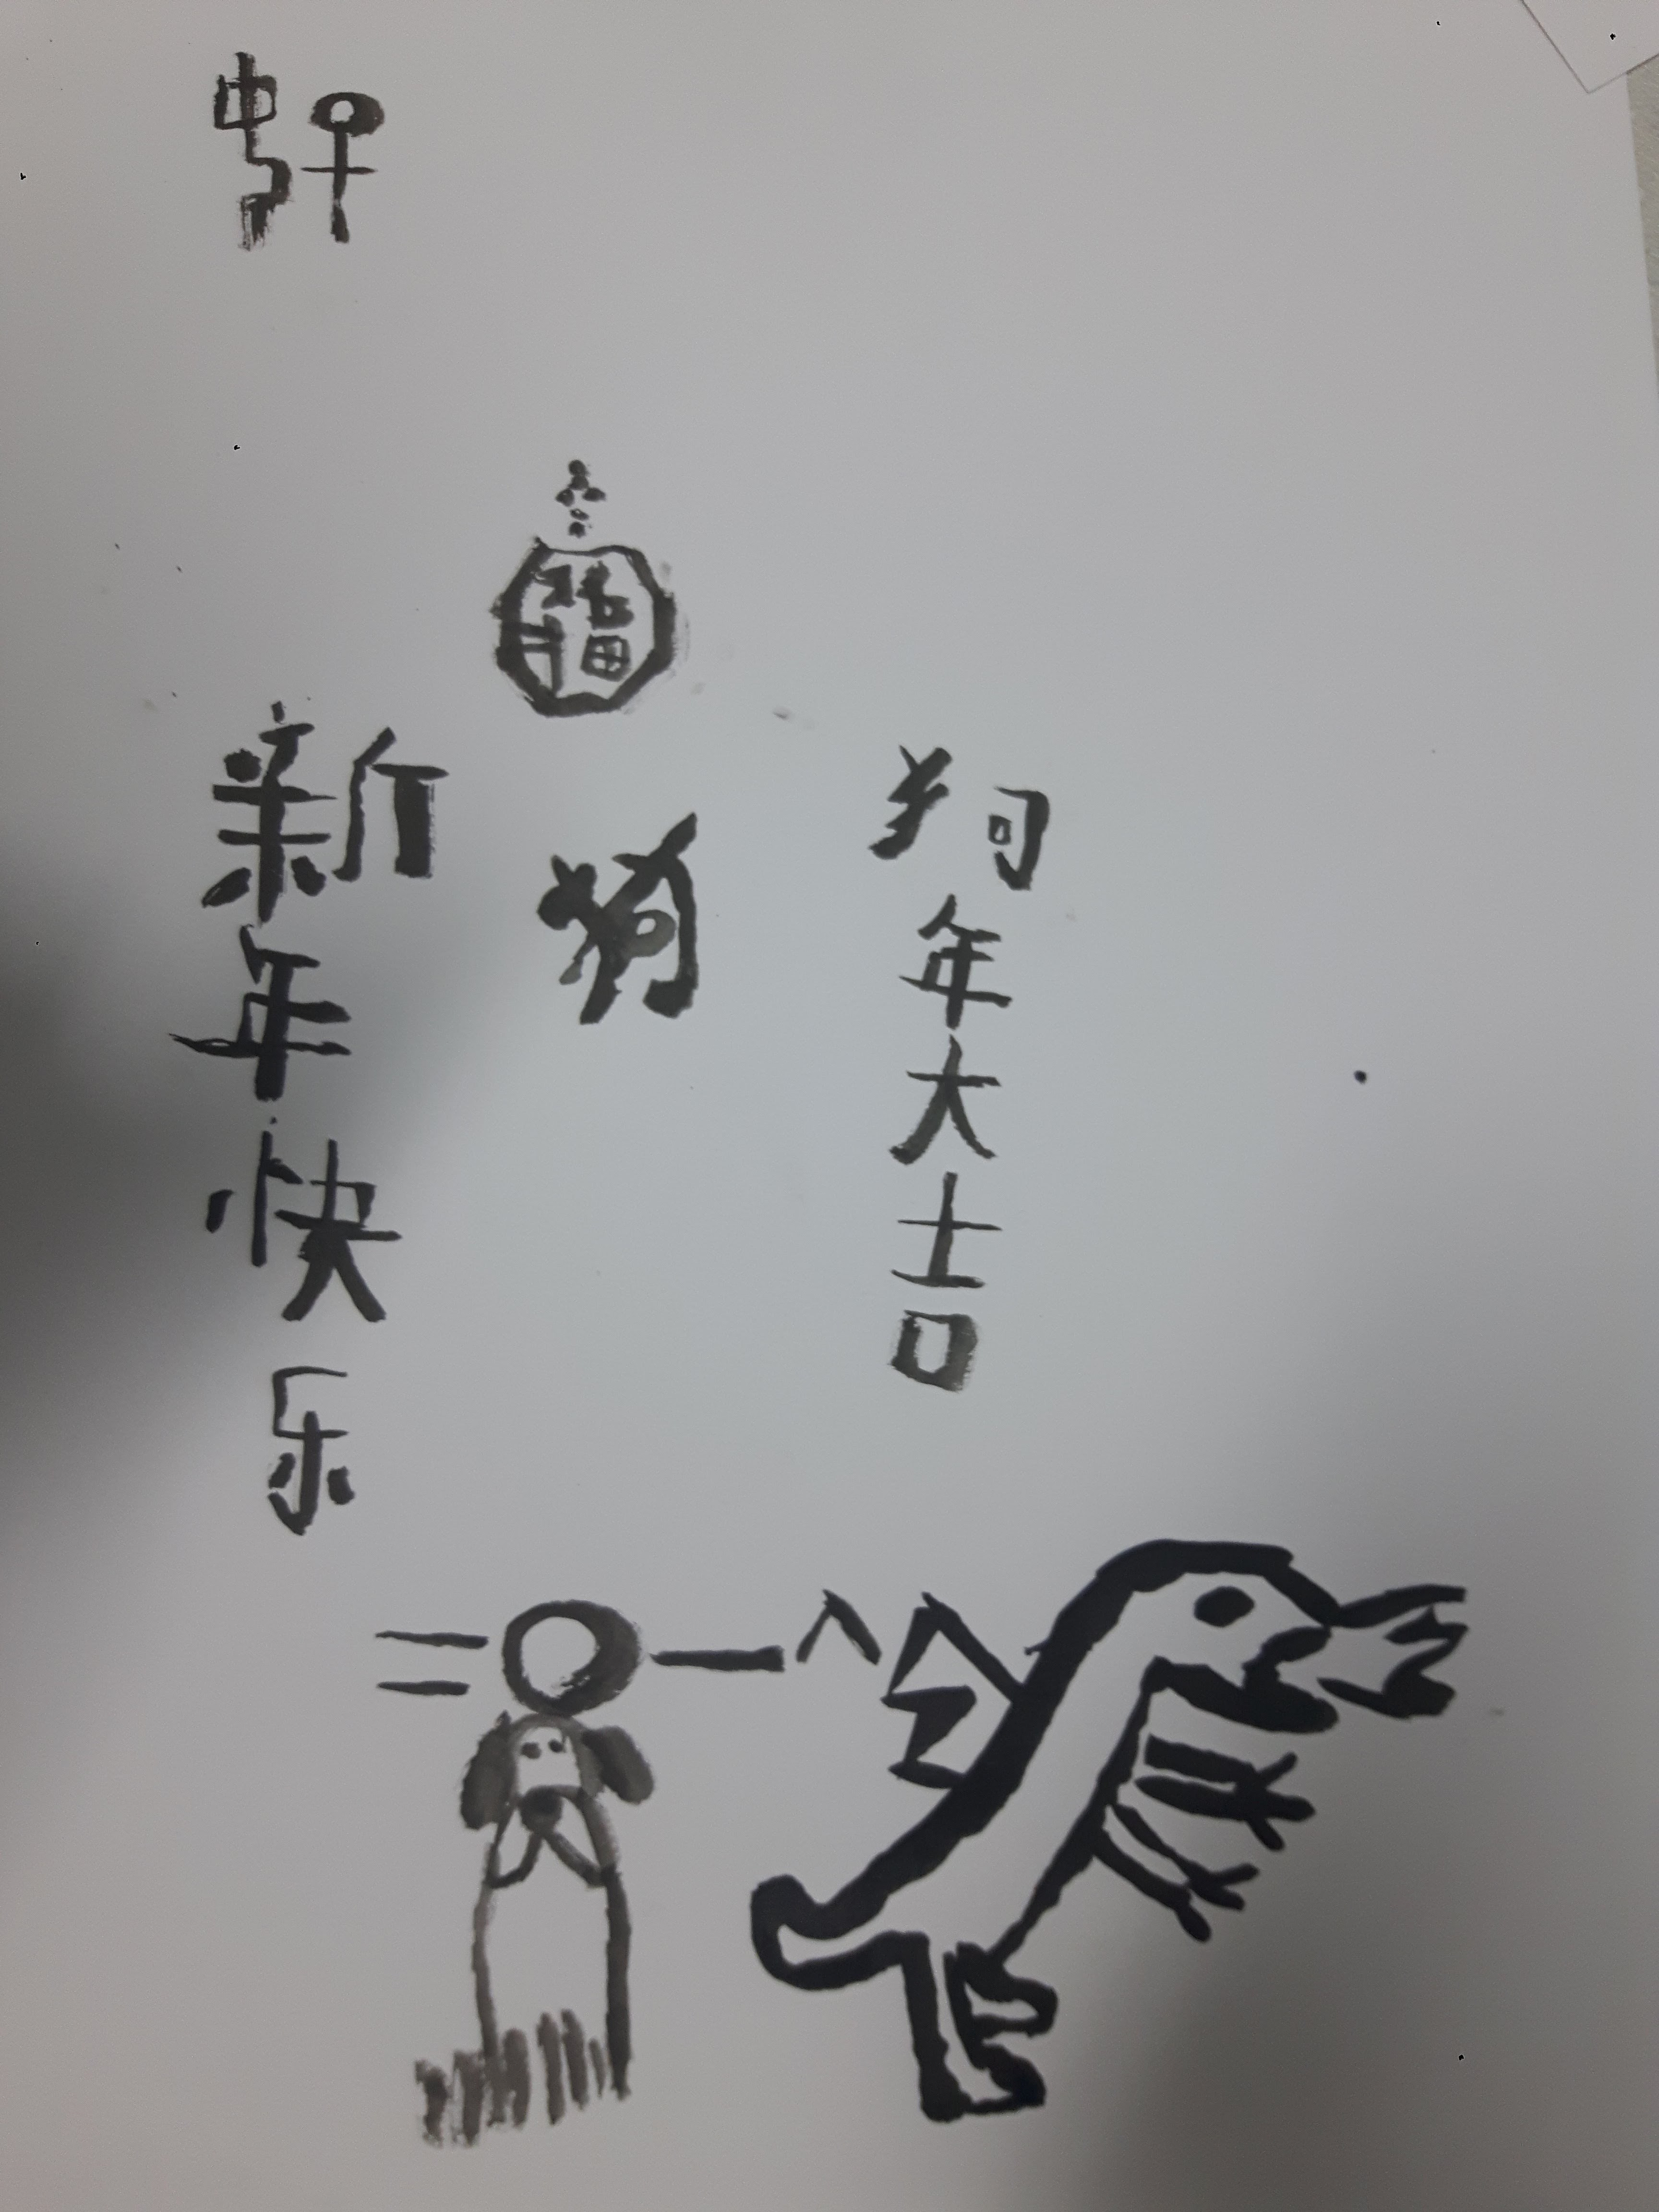 福
新年快乐
狗
狗年大吉
二〇一八